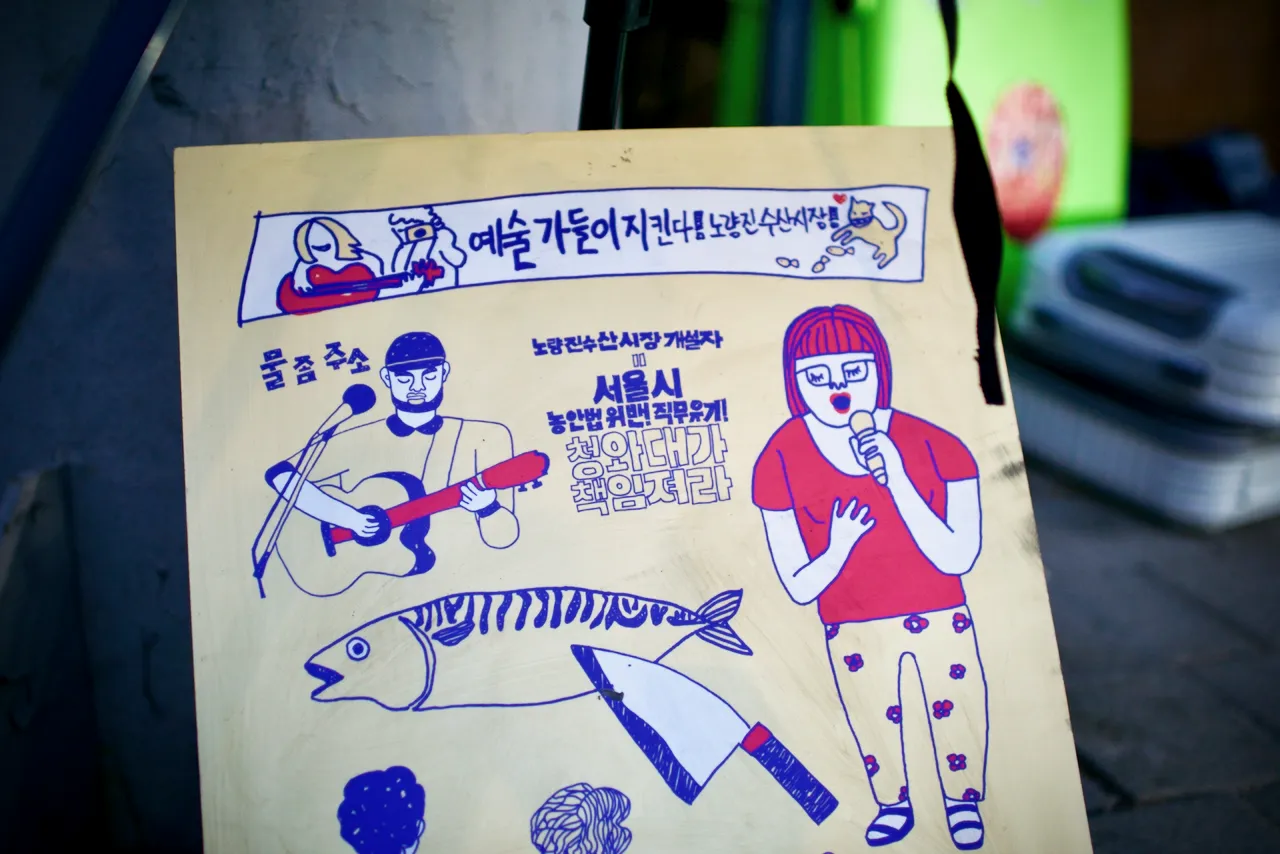 예술가들이 지킨다!! 노량진수산시장!!
물 좀 주소
노량진수산시장 개설자
=
서울시
농안법 위반! 직무유기!
청와대가
책임져라